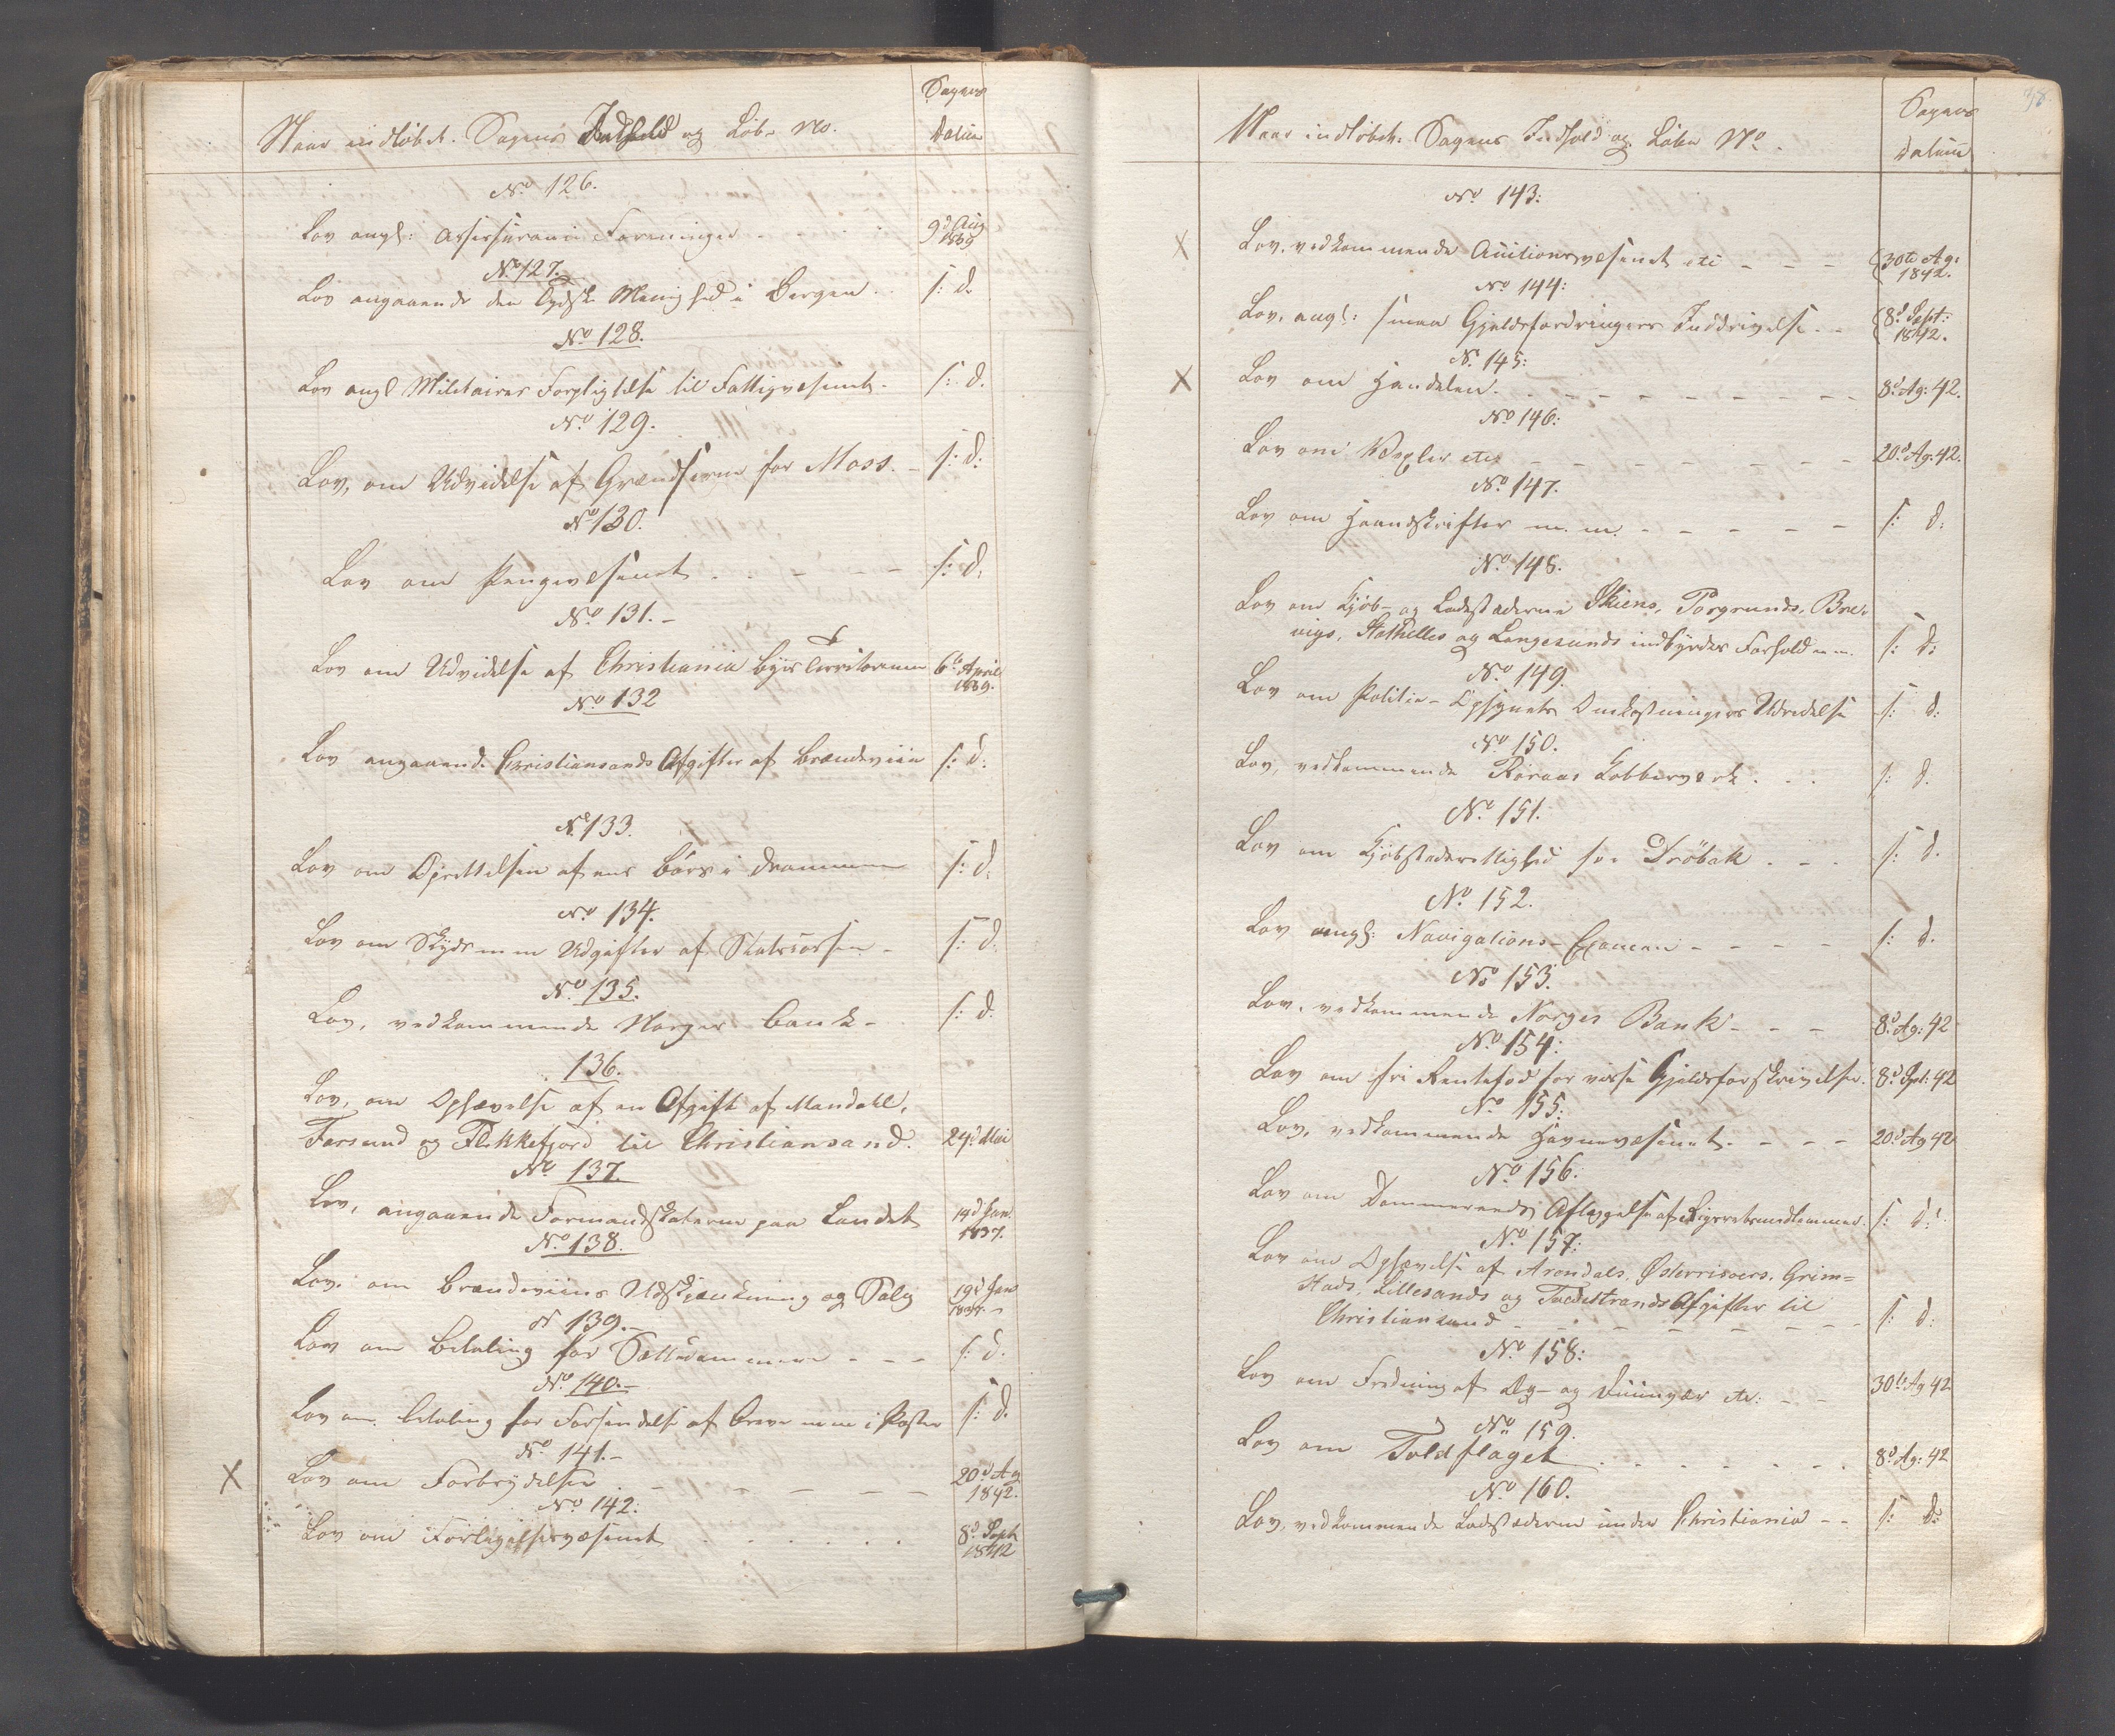 Naar indløbet. Sagens Indhold og Løb. No.
Sagens
Datum
No 126.
Lov angl: Assurance Foreninger - - -
9d Aug
1839
No 127.
Lov angaaende den Tydske Menighed i Bergen. -
s: d.
No 128.
Lov angl Militaires Forpligtelse til Fattigvæsenet.
s: d.
No 129.
Lov, om Udvidelse af Grændserne for Moss. -
s: d:
No 130.
Lov om Pengevæsenet - - - - -
s: d:
No 131. -
Lov om Udvidelse af Christiania Byes Territorium
6te April
1839.
No 132
Lov angaaende Christiansands Afgifter af Brændeviin
s: d:
No 133.
Lov om Oprettelsen af en Börs i Drammen
s: d:
No 134.
Lov om Skyds m m Udgifter af Statscassen -
s: d.
No 135.
Lov, vedkommende Norges Bank -
s: d.
136.
Lov, om Ophævelse af en Afgift af Mandahl,
Farsund og Flekkefjord til Christiansand.
29d Mai
No 137.
Lov, angaaende Formandskaberne paa Landet
14d Jan.
1837.
No 138.
Lov. om Brændeviins Udskjænkning og Salg
19d Jan
No 139. -
Lov om Betaling for Sættedommere - - -
s: d.
No 140. -
Lov om Betaling for Forsendelse af Breve m m i Posten
s: d.
No 141. -
X Lov om Forbrydelser - - - - -
20d Ag
1842.
No 142:
Lov om Forligelsesvæsenet . . . . .
8d Sept
1842
38.
Naar indløbet: Sagens Indhold og Löbe No.
Sagens
Datum
No 143:
X Lov, vedkommende Auctionsvæsenet etc - - -
30te Ag:
1842.
No 144:
Lov, angl: smaa Gjældsfordringers Inddrivelse. -
8d Sept:
1842.
No 145:
X Lov om Handelen. - - - - - - - -
8d Ag: 42.
No 146:
Lov om Vexler etc - - - - - - -
20d Ag: 42.
No 147.
Lov om Haandskrifter m. m. - - - - -
s: d:
No 148.
Lov om Kjöb- og Ladestæderne Skiens, Porsgrunds, Bre-
vigs, Stathelles og Langesunds indbyrdes Forhold m. m.
s: d:
No 149.
Lov om Politie-Opsynets Omkostningers Udredelse
s: d:
No 150.
Lov, vedkommende Röraas Kobberværk . . .
s: d.
No 151.
Lov om Kjöbstadrettighed for Dröbak . - .
s: d.
No 152.
Lov angl: Navigations-Examen - - - -
s: d.
No 153.
Lov, vedkommende Norges Bank - - -
8d Ag: 42
No 154:
Lov om fri Rentefod for visse Gjældsforskrivelser.
8d Spt: 42
No 155:
Lov, vedkommende Havnevæsenet. - - - -
20d Ag 42
No 156:
Lov om Dommereeds Aflæggelse af Rigsretsmedlemmer.
s: d:
No 157:
Lov om Ophævelse af Arendals, Østerrisoers, Grim=
stads, Lillesands og Tvedestrands Afgifter til
Christiansand - - - - - - - -
s: d:
No 158:
Lov om Fredning af Æg- og Duunvær etc: - -
30te Ag 42
No 159.
Lov om Toldflaget . . . . . .
8d Ag: 42
No 160.
Lov, vedkommende Ladestæderne under Christiania - -
s: d: